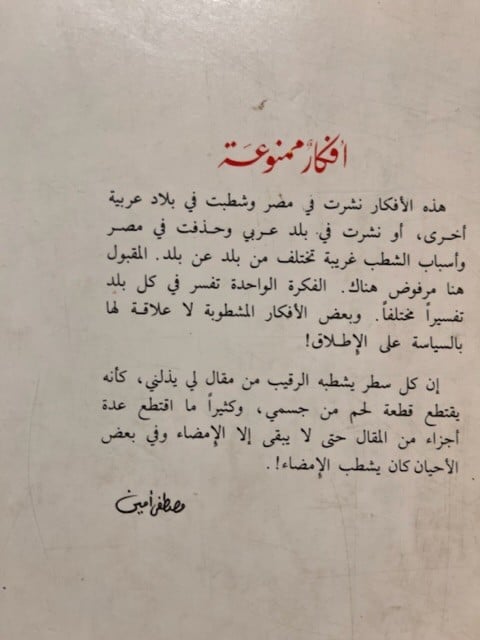 أفكار ممنوعة
هذه الأفكار نشرت في مصر وشطبت في بلاد عربية
أخرى، أو نشرت في بلد عربي وحذفت في مصر
وأسباب الشطب غريبة تختلف من بلد عن بلد. المقبول
هنا مرفوض هناك. الفكرة الواحدة تفسر في كل بلد
تفسيراً مختلفاً. وبعض الأفكار المشطوبة لا علاقة لها
بالسياسة على الإطلاق!
إن كل سطر يشطبه الرقيب من مقال لي يذلني، كأنه
يقتطع قطعة لحم من جسمي، وكثيراً ما اقتطع عدة
أجزاء من المقال حتى لا يبقى إلا الإمضاء وفي بعض
الأحيان كان يشطب الإمضاء!.
مصطفى أمين